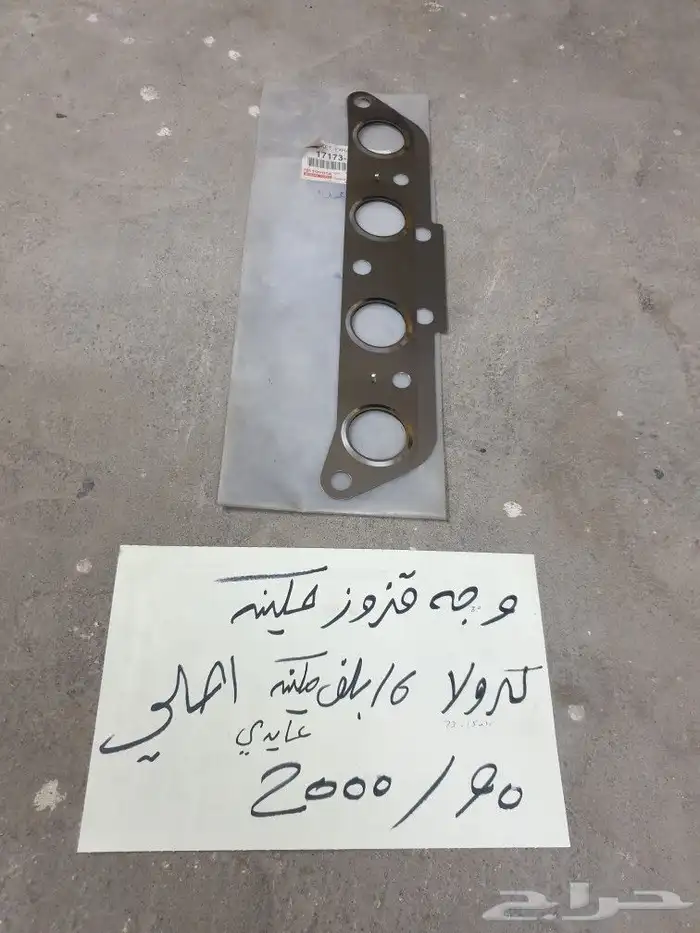 17173-
وجه قزوز مكينه
كرولا 16 بلف مكينه اصلي
عايدي
2000/90
حراج